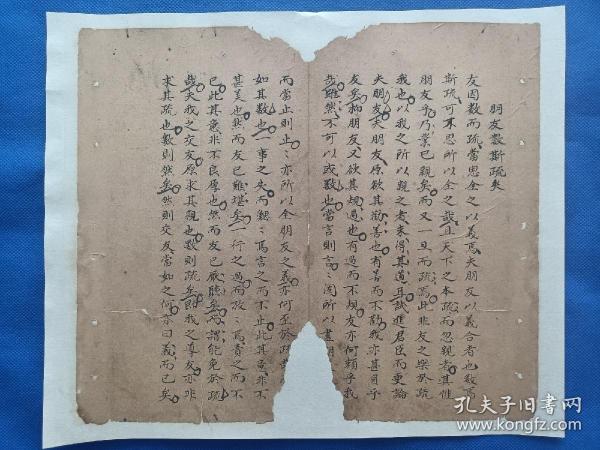 朋友數斯疏矣
友因數而疏當思全之以義焉夫朋友以義合者也數焉
斯疏可不思所以全之哉且天下之本疏而忽親者其惟
朋友乎乃業已親矣而又一旦而疏焉此非友之樂於疏
我也以我之所以親之者未得其道耳試進君臣而更論
夫朋友夫朋友原欲其勸善也有善而不勸我亦甚自乎
友矣抑朋友又欲其規過也有過而不規友亦何賴乎我
哉雖然不可以或數也當言則言言間所以盡朋
而當止則止止亦所以全朋友之義亦何至於疏
如其數也一事之失而親親焉言之而不止此其意非不
甚美也然而友已難堪矣一行之過而放放焉責之而不
已此其意非不良厚也然而友已厭聽矣謂能免於疏
哉夫我之交友原求其親也數則疏矣即我之尊友亦非
求其疏也數則然矣然則交友當如之何亦曰義而已矣
孔夫子旧书网
www.kongfz.com